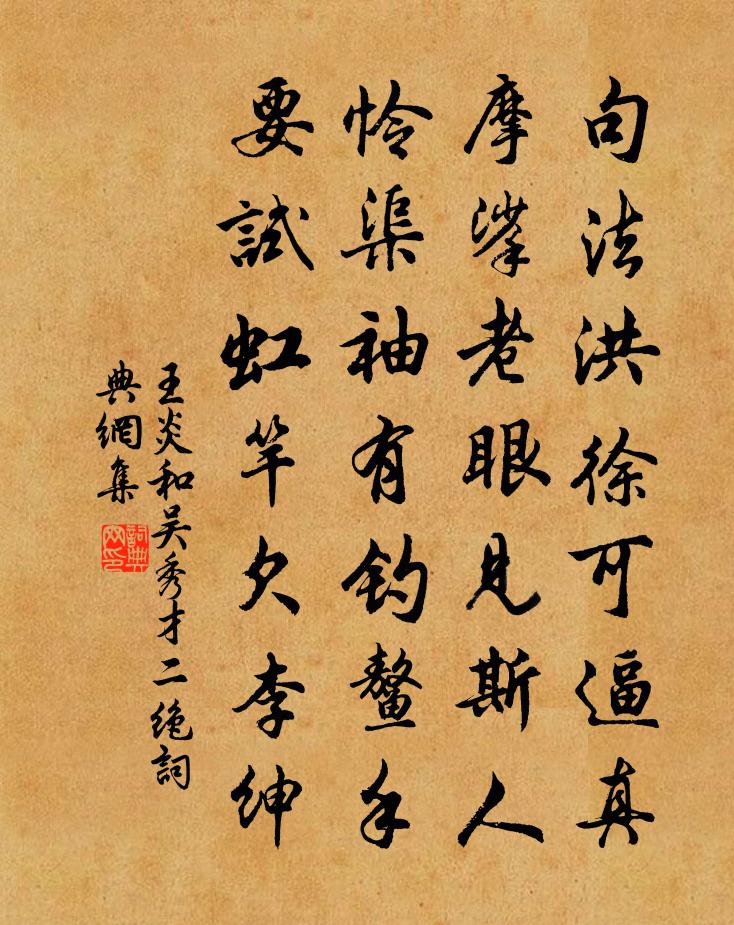 句法洪徐可逼真
摩挲老眼見斯人
怜渠袖有钓鳌手
要試虹竿欠李紳
王炎和吴秀才二绝詞
典網集
詞典
网印